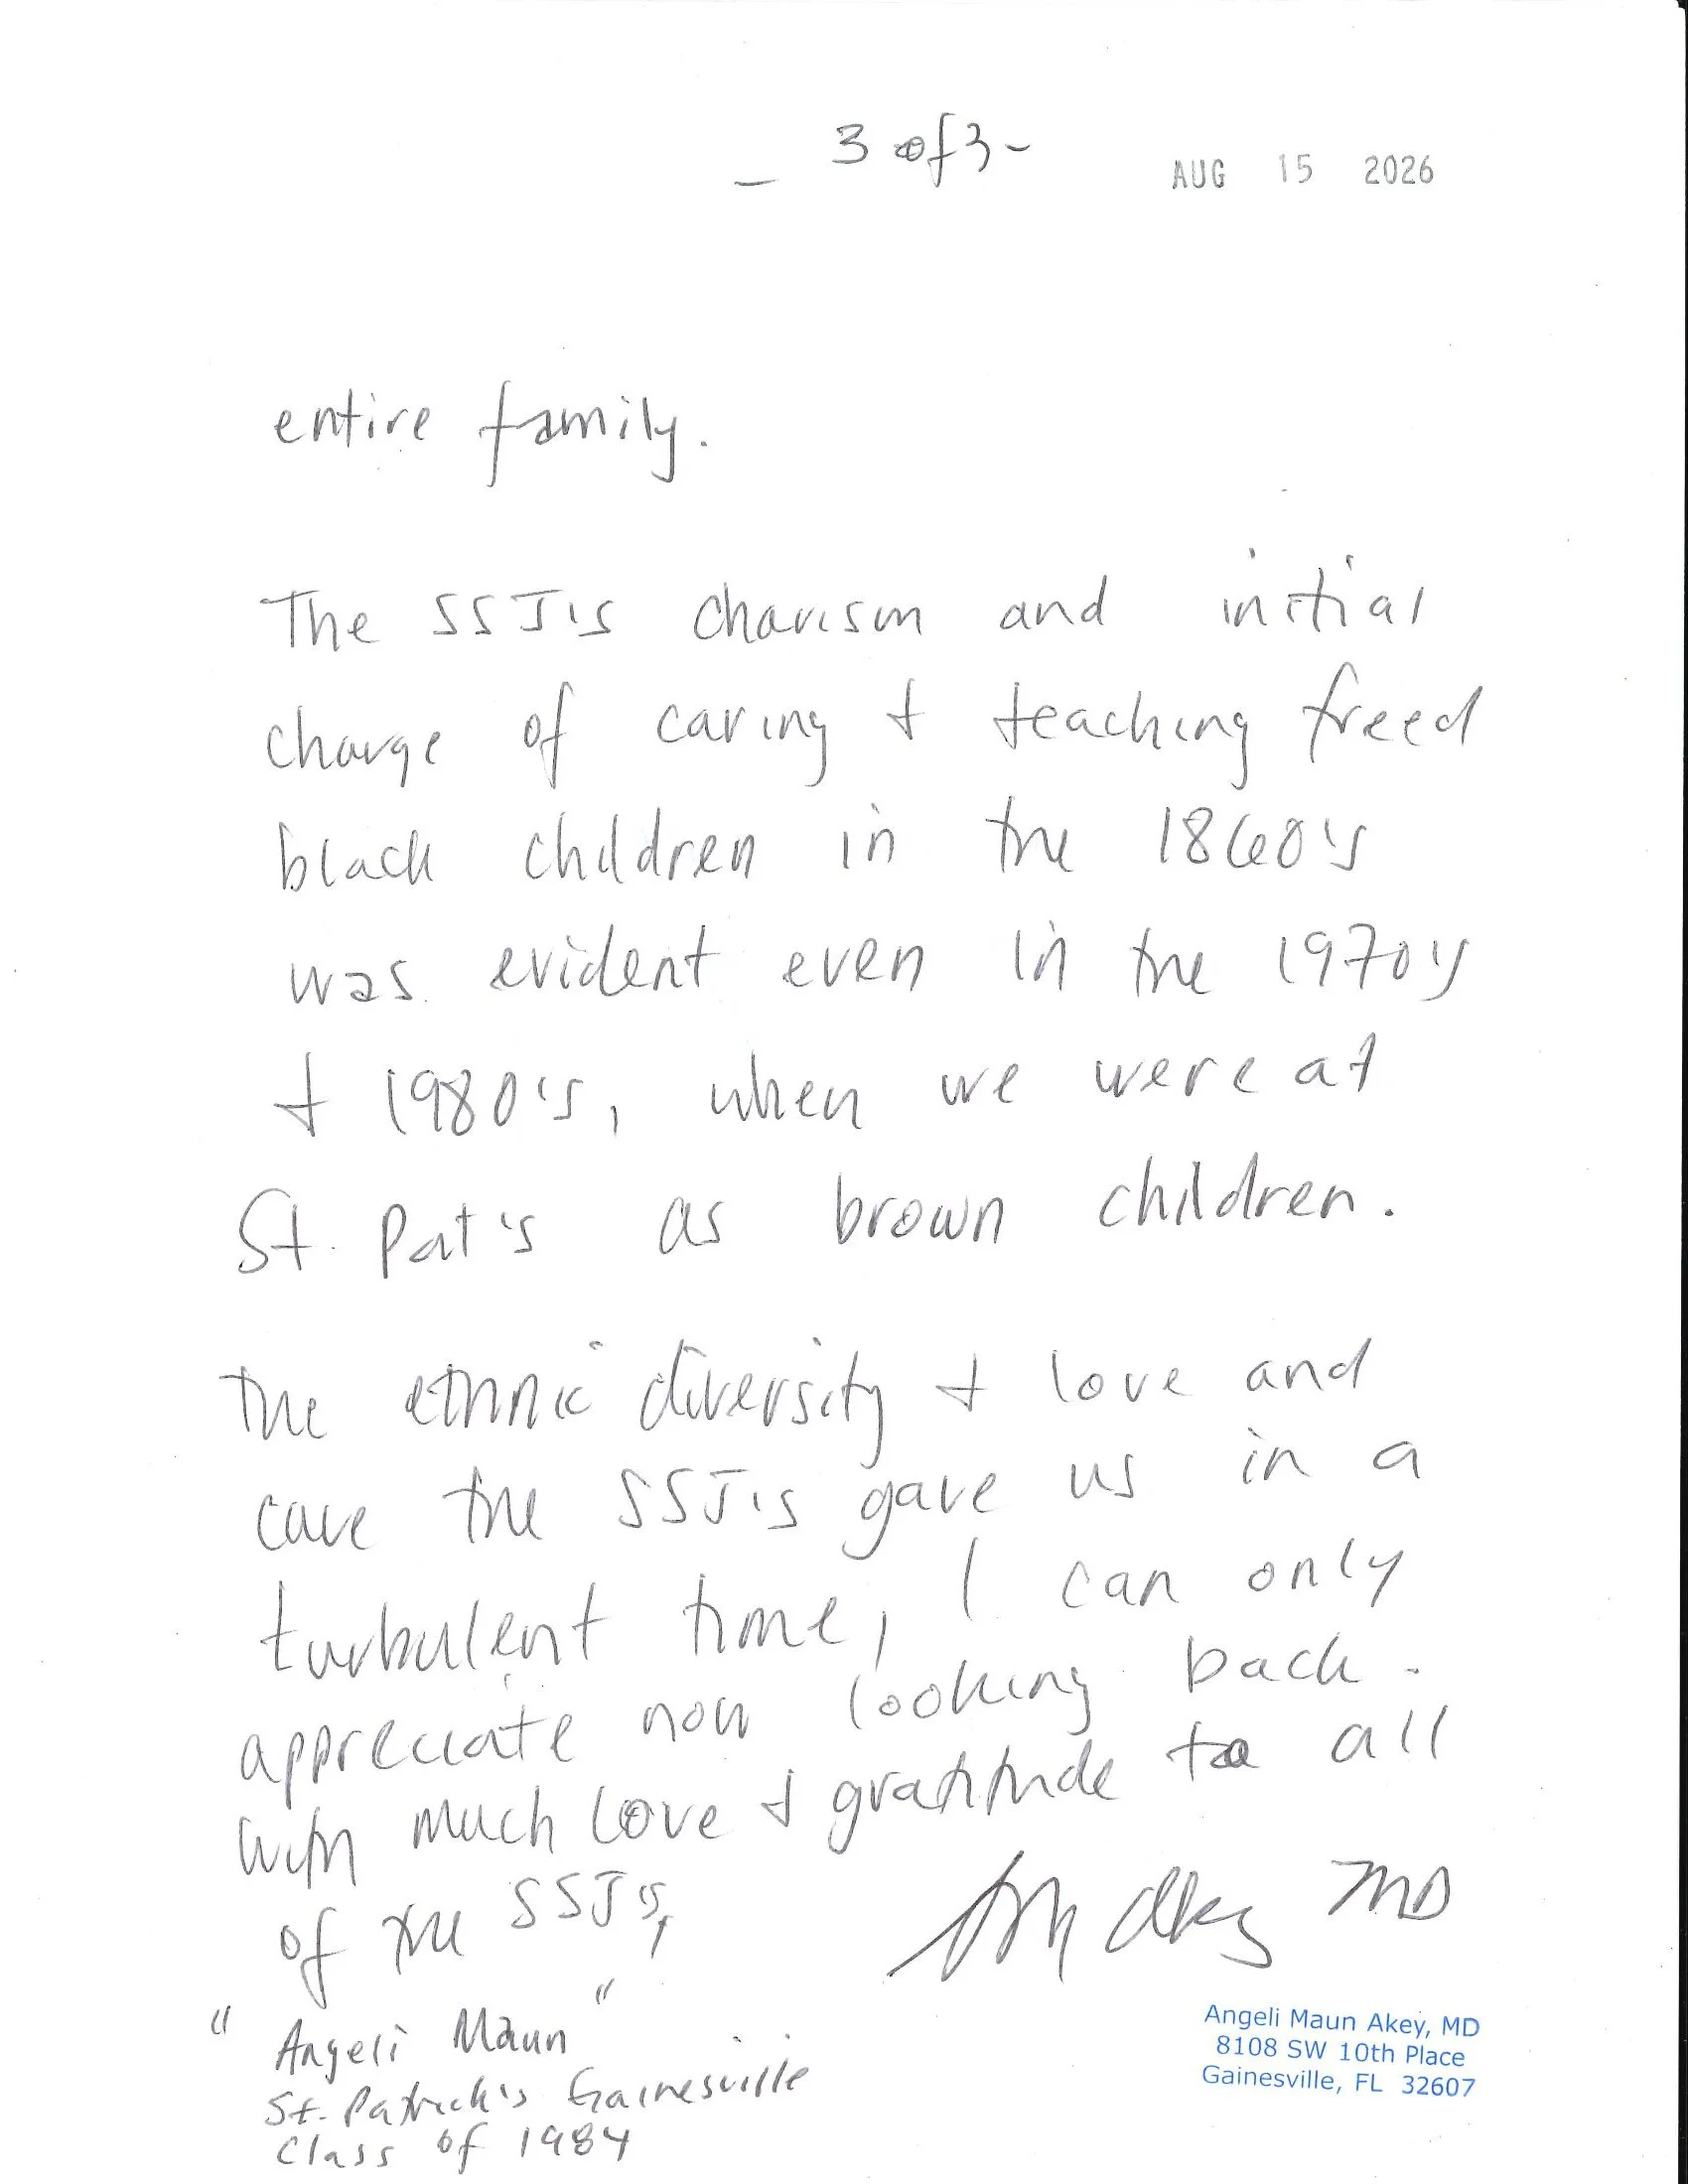 - 3 of 3 -
AUG 15 2026
entire family.
The SSJ's charism and initial
charge of caring + teaching freed
black children in the 1860's
was evident even in the 1970's
+ 1980's, when we were at
St. Pat's as brown children.
The ethnic diversity + love and
care the SSJ's gave us in a
turbulent time, I can only
appreciate now looking back.
With much love + gratitude to all
of the SSJ's,
Akey MD
"Angeli Maun"
St. Patrick's Gainesville
Class of 1984
Angeli Maun Akey, MD
8108 SW 10th Place
Gainesville, FL 32607